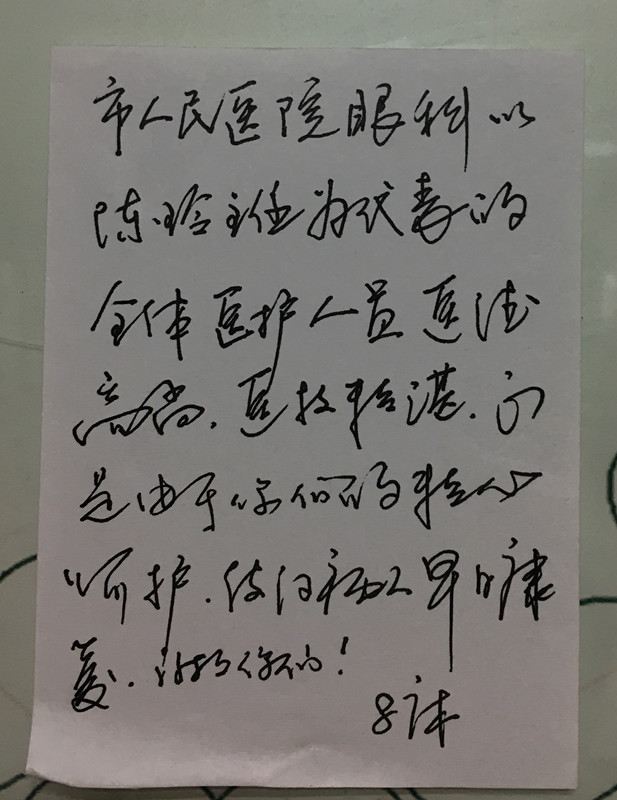 市人民医院眼科以
陈玲主任为代表的
全体医护人员医德
高尚,医技精湛,
是由于你们的精心
呵护,使得病人早日康
复,谢谢你们!
8床